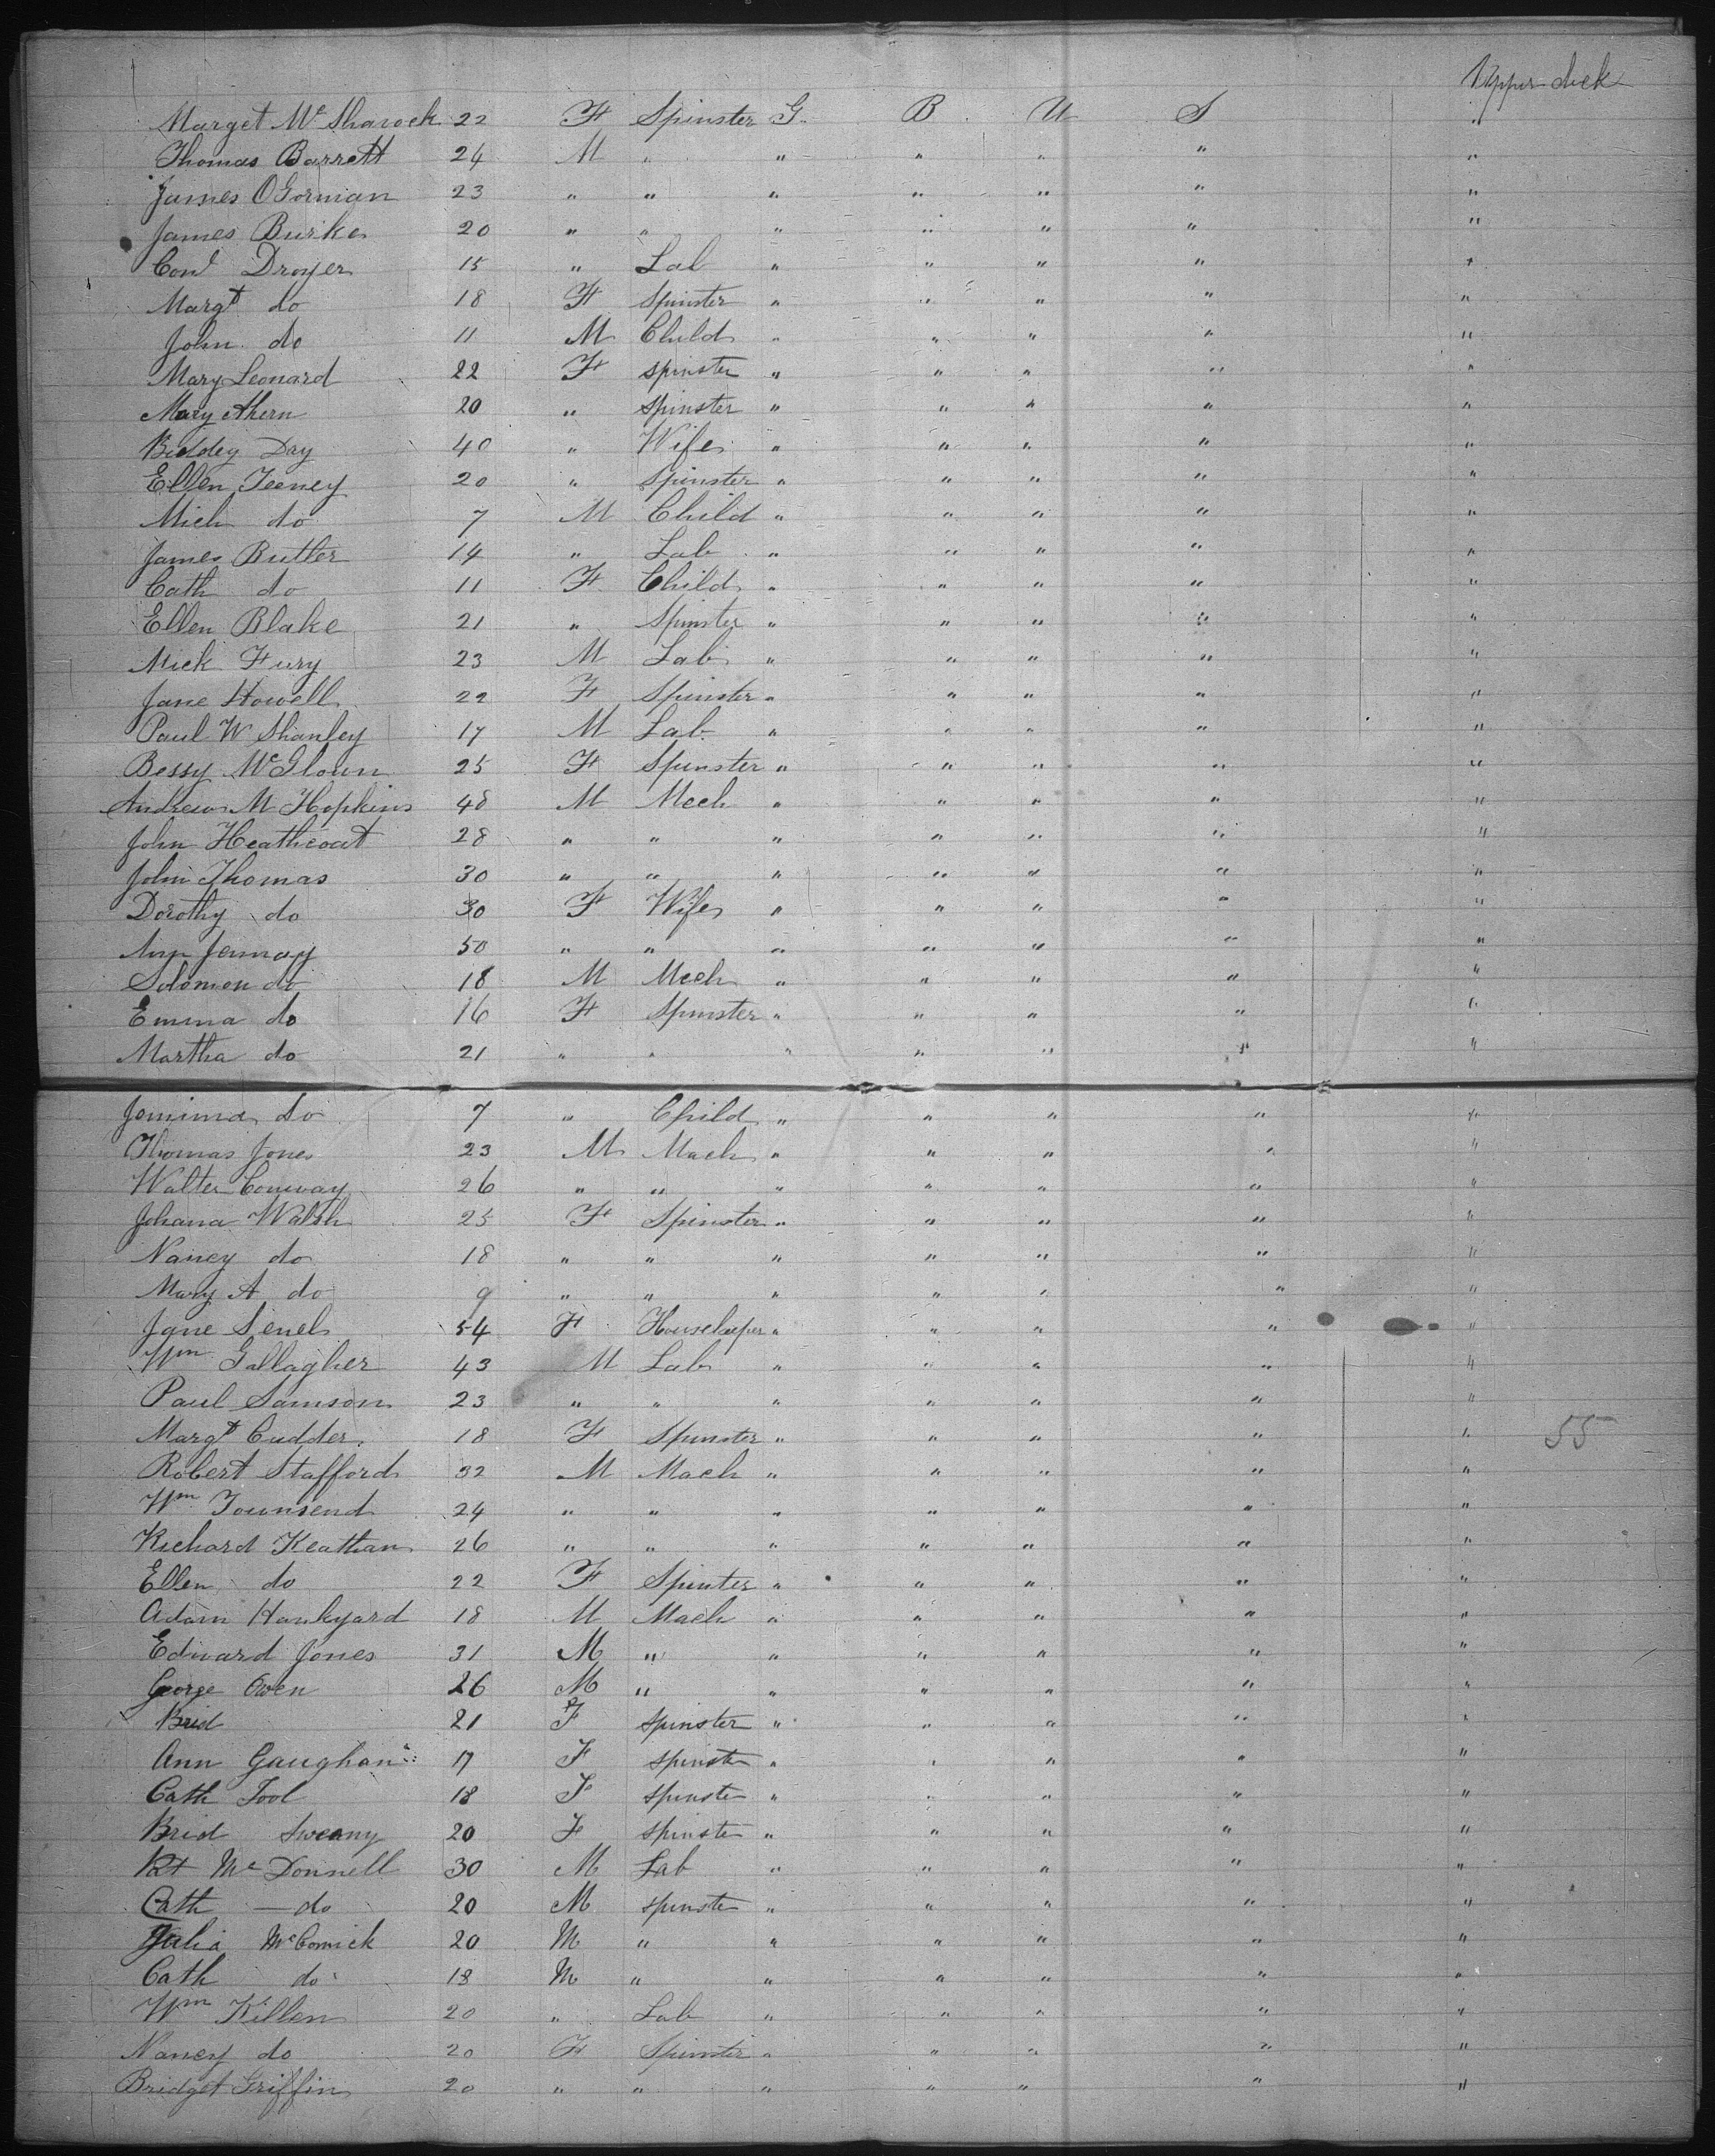 Upper deck
Marget Mc Sharock 22 F Spinster G B U S "
Thomas Barrett 24 M " " " " " "
James OGorman 23 " " " " " " "
James Burke 20 " " " " " " "
Conl Droyer 15 " Lab " " " " "
Margt do 18 F Spinster " " " " "
John do 11 M Child " " " " "
Mary Leonard 22 F spinster " " " " "
Mary Ahern 20 " spinster " " " " "
Biddey Day 40 " Wife " " " " "
Ellen Feeney 20 " Spinster " " " " "
Mich do 7 M Child " " " " "
James Butler 14 " Lab " " " " "
Cath do 11 F Child " " " " "
Ellen Blake 21 " Spinster " " " " "
Mick Fury 23 M Lab " " " " "
Jane Howell 22 F Spinster " " " " "
Paul W Shanley 17 M Lab " " " " "
Bessy McGloun 25 F Spinster " " " " "
Andrew M Hopkins 48 M Mech " " " " "
John Heathcoat 28 " " " " " " "
John Thomas 30 " " " " " " "
Dorothy do 30 F Wife " " " " "
Ann 50 " " " " " " "
Solomen do 18 M Mech " " " " "
Emma do 16 F Spinster " " " " "
Martha do 21 " " " " " " "
Jemima do 7 " Child " " " " "
Thomas Jones 23 M Mach " " " " "
Walter Conway 26 " " " " " " "
Johana Walsh 25 F Spinster " " " " "
Nancy do 18 " " " " " " "
Mary A do 9 " " " " " " "
Jane Senel 54 F Housekeeper " " " " "
Wm Gallagher 43 M Lab " " " " "
Paul Samson 23 " " " " " " "
Margt Cudder 18 F Spinster " " " " " 55
Robert Stafford 32 M Mach " " " " "
Wm Townsend 24 " " " " " " "
Richard Keathan 26 " " " " " " "
Ellen do 22 F Spinter " " " " "
Adam Hankyard 18 M Mach " " " " "
Edward Jones 31 M " " " " " "
George Owen 26 M " " " " " "
Brid 21 F spinster " " " " "
Ann Gaughan 17 F spinster " " " " "
Cath Tool 18 F spinster " " " " "
Brid Sweany 20 F spinster " " " " "
Pat McDonnell 30 M Lab " " " " "
Cath — do 20 M spinster " " " " "
Julia McComick 20 M " " " " " "
Cath do 18 M " " " " " "
Wm Killen 20 " Lab " " " " "
Nancy do 20 F Spinster " " " " "
Bridget Griffin 20 " " " " " " "